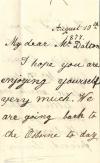 August 13th
1877.
My dear Mr. Dalton
I hope you are
enjoying yourself
very much. We
are going back to
the Osborne to day